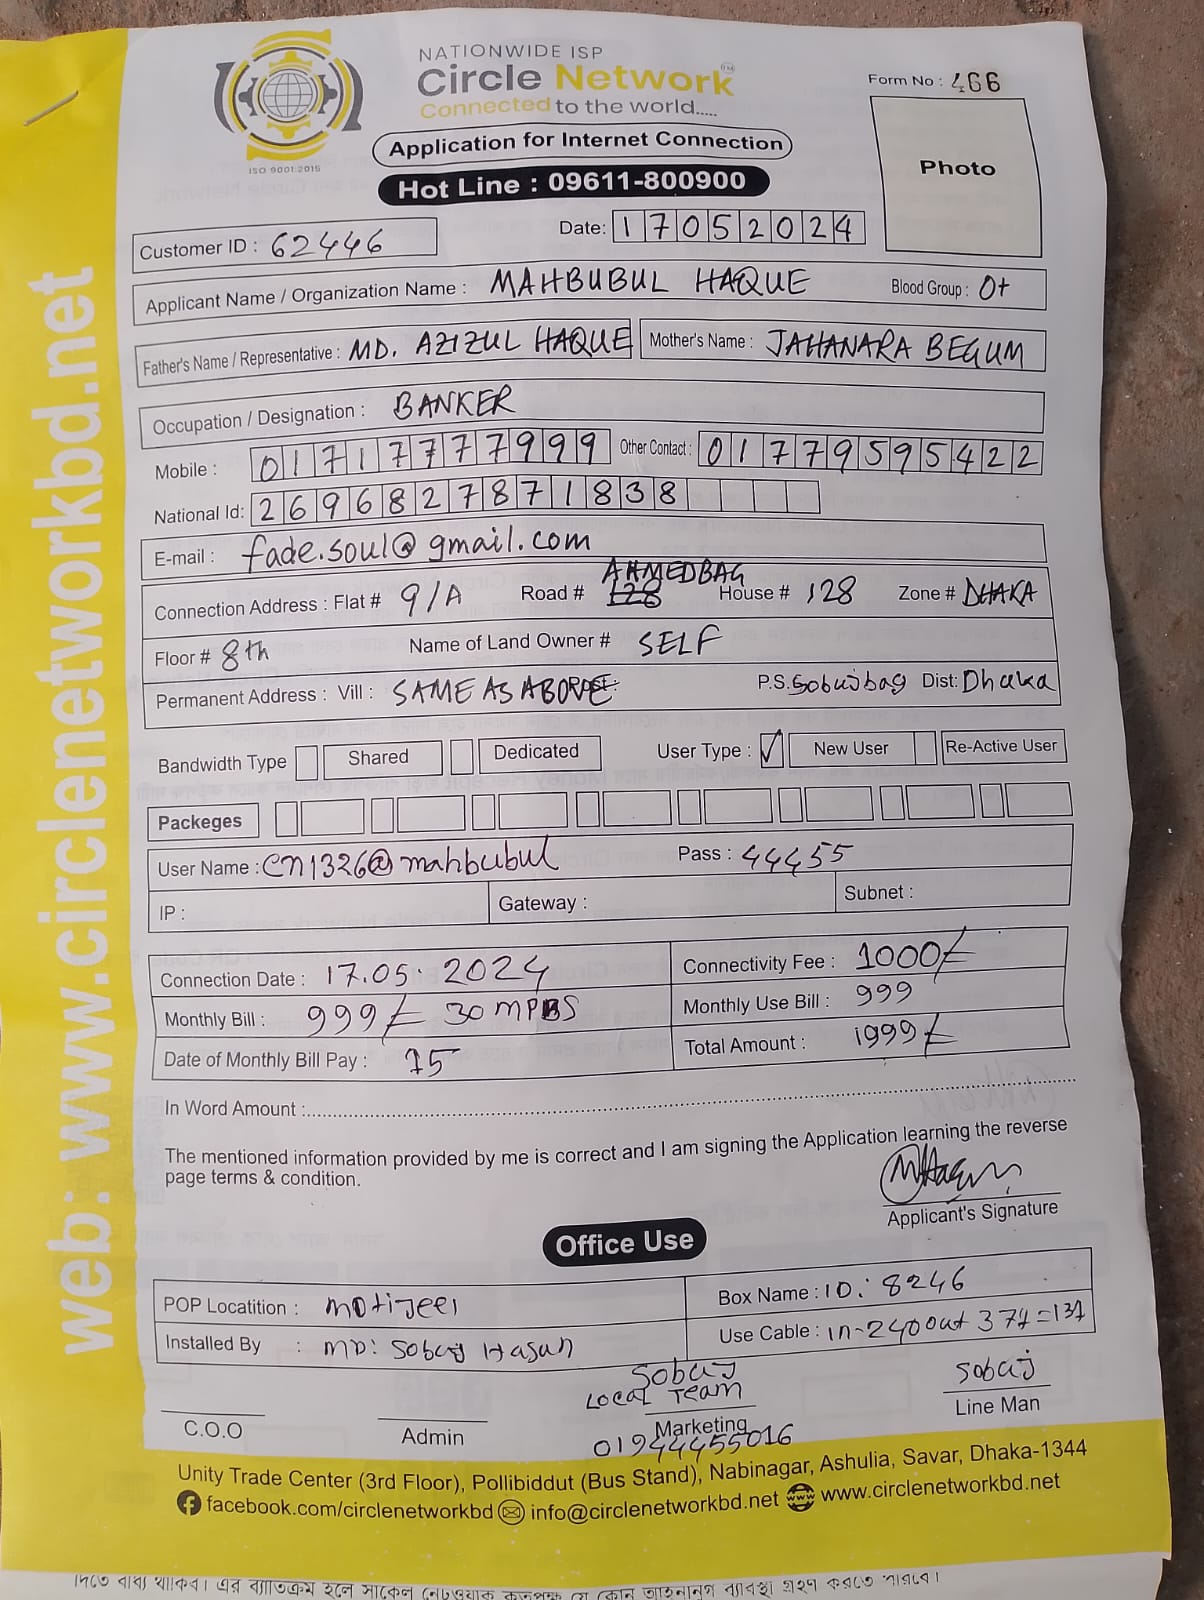 NATIONWIDE ISP
Circle Network TM
Connected to the world.....
ISO 9001:2015
Form No : 466
Application for Internet Connection
Hot Line : 09611-800900
Photo
Customer ID : 62446
Date: 17052024
Applicant Name / Organization Name : MAHBUBUL HAQUE Blood Group : O+
Father's Name / Representative : MD. AZIZUL HAQUE Mother's Name : JAHANARA BEGUM
Occupation / Designation : BANKER
Mobile : 01717777999 Other Contact : 01779595422
National Id: 2696827871838
E-mail : fade.soul@gmail.com
Connection Address : Flat # 9/A Road # 128 AHMEDBAG House # 128 Zone # DHAKA
Floor # 8th Name of Land Owner # SELF
Permanent Address : Vill : SAME AS P.S. Sobujbag Dist: Dhaka
Bandwidth Type Shared Dedicated User Type : ✓ New User Re-Active User
Packeges
User Name : cn1326@mahbubul Pass : 44455
IP : Gateway : Subnet :
Connection Date : 17.05.2024 Connectivity Fee : 1000/-
Monthly Bill : 999/- 30 MPBS Monthly Use Bill : 999
Date of Monthly Bill Pay : 15 Total Amount : 1999/-
In Word Amount :
The mentioned information provided by me is correct and I am signing the Application learning the reverse
page terms & condition.
Applicant's Signature
Office Use
POP Locatition : motijeel Box Name : ID: 8246
Installed By : MD: Sobuj Hasan Use Cable : in-240 out 374=134
Sobuj
Local Team
Sobuj
C.O.O Admin Marketing Line Man
01944455016
Unity Trade Center (3rd Floor), Pollibiddut (Bus Stand), Nabinagar, Ashulia, Savar, Dhaka-1344
facebook.com/circlenetworkbd info@circlenetworkbd.net www.circlenetworkbd.net
web: www.circlenetworkbd.net
দিতে বাধ্য থাকিব। এর ব্যাতিক্রম হলে সার্কেল নেটওয়ার্ক কতৃপক্ষ যে কোন আইনানুগ ব্যাবস্থা গ্রহণ করতে পারবে।